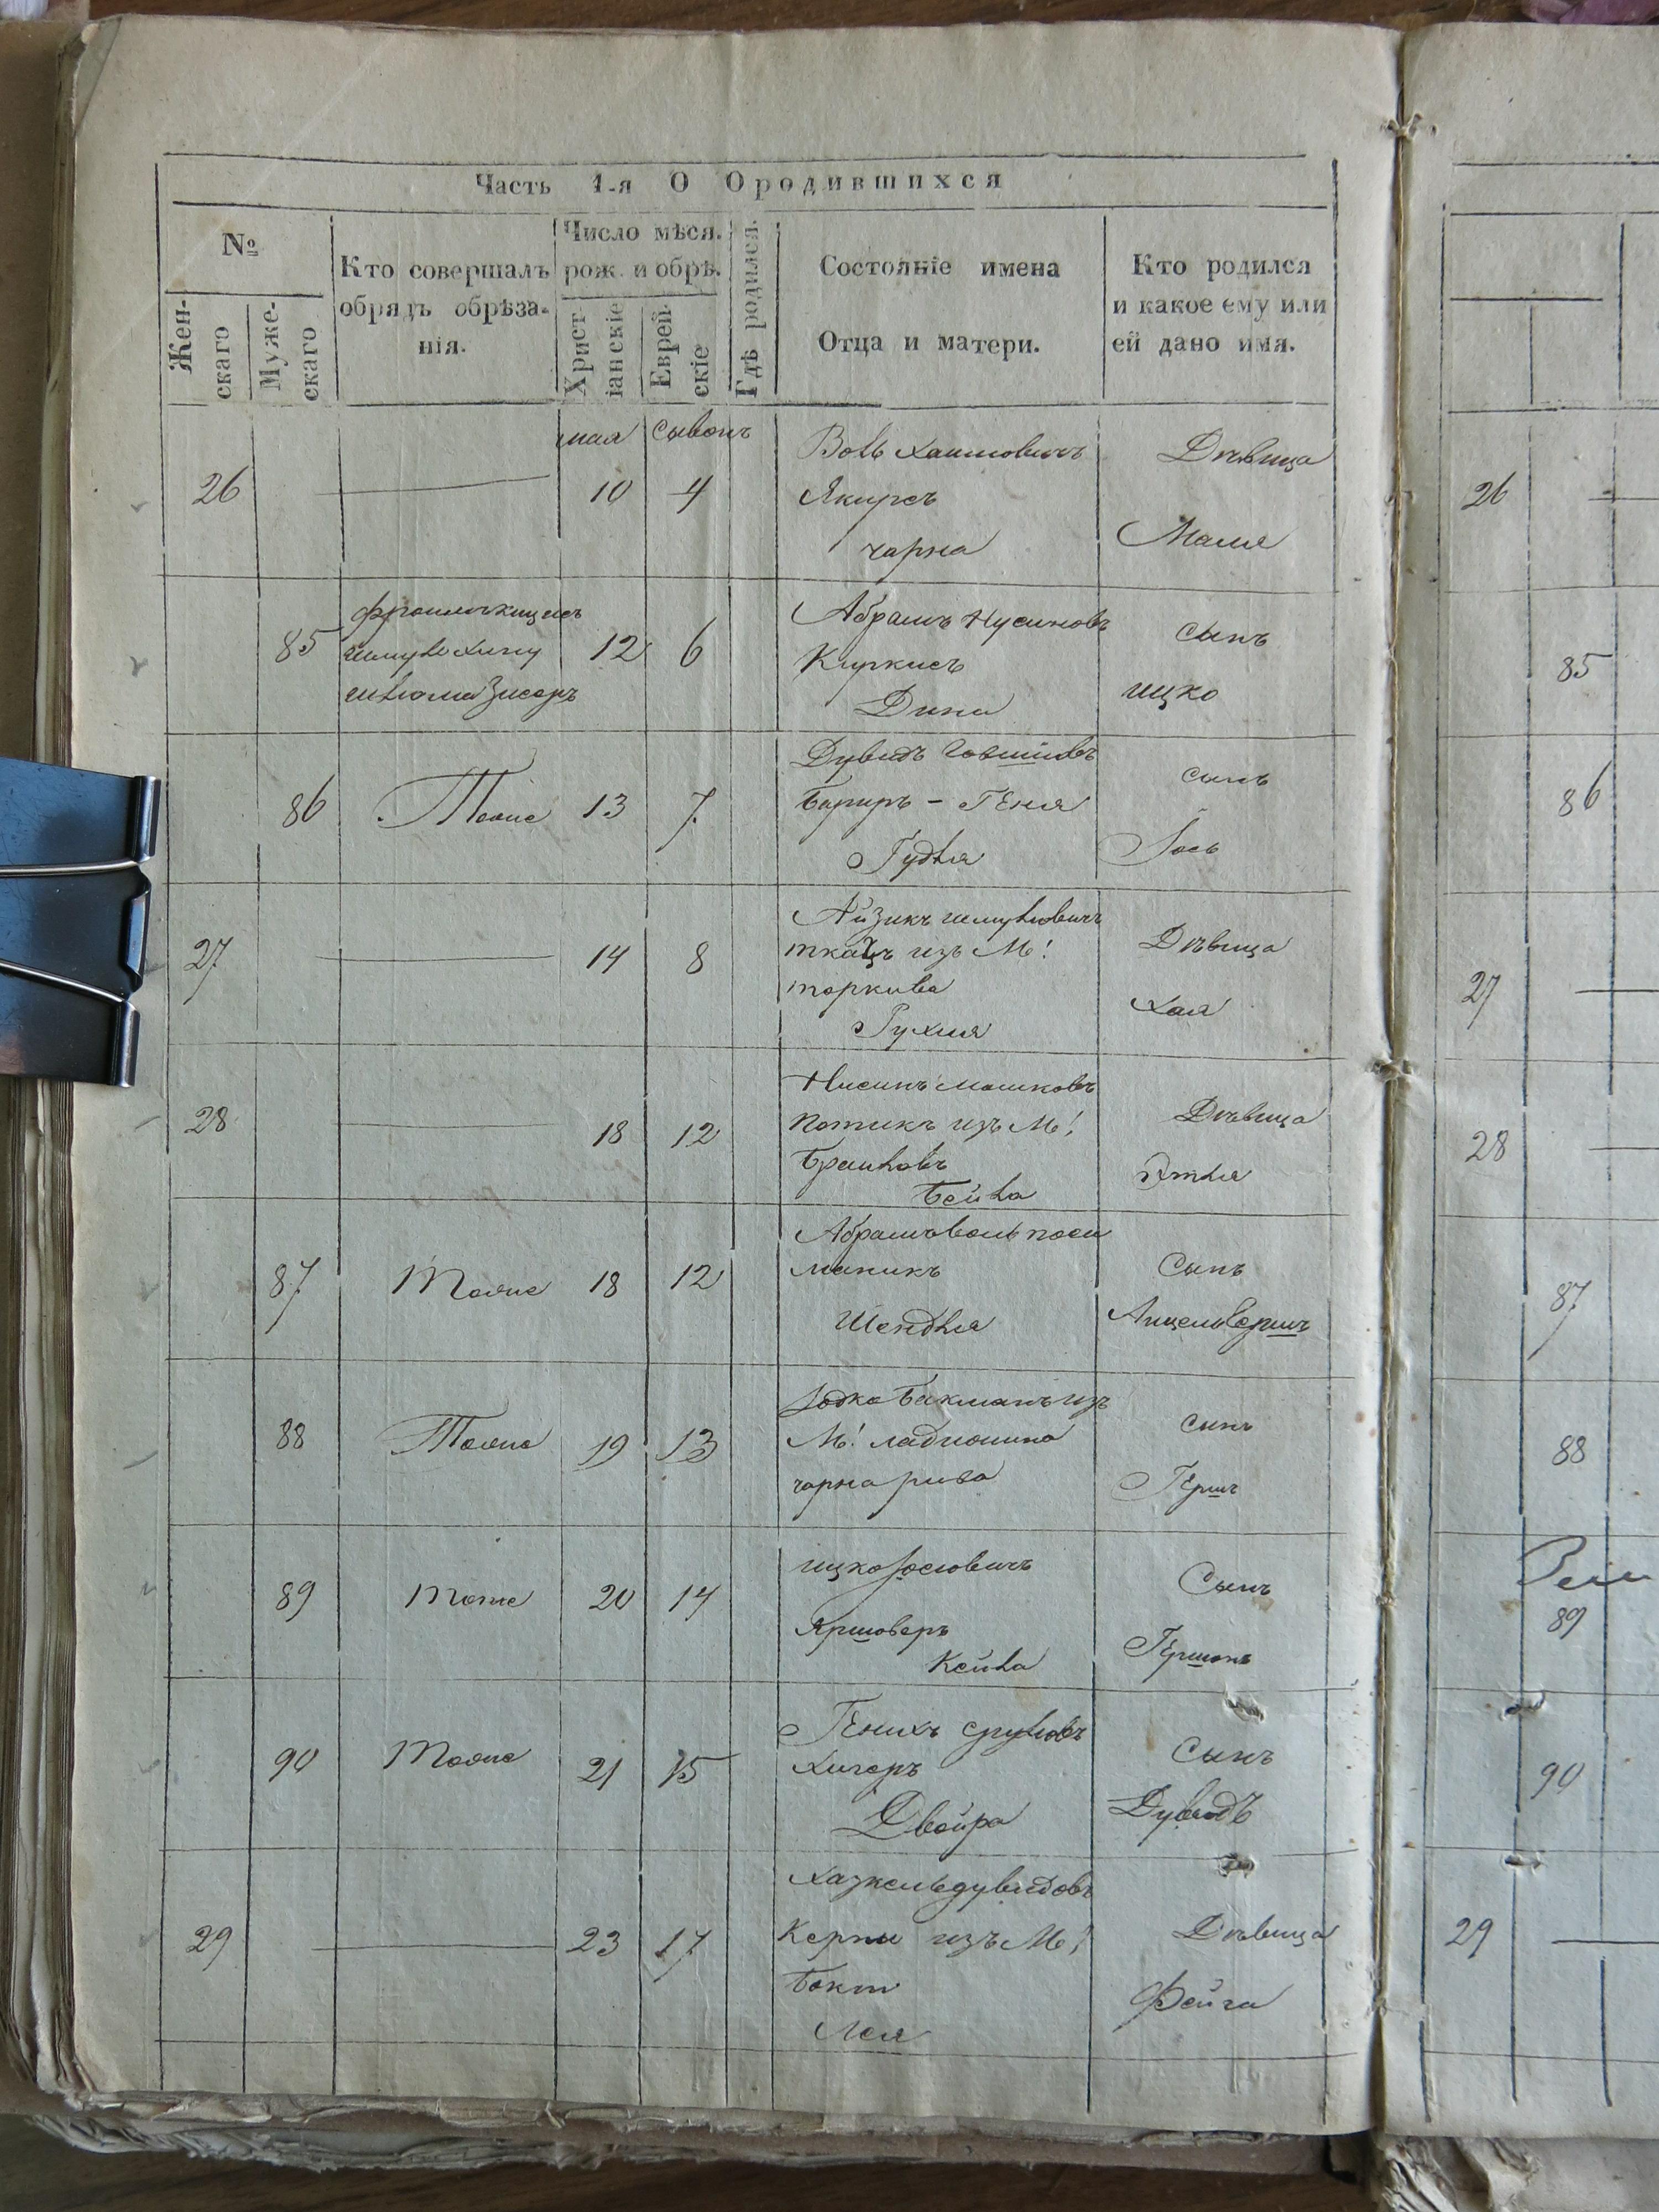 Часть 1-я О Ородившихся
№
Жен-
скаго
Муже-
скаго
Кто совершалъ
обрядъ обрѣза-
нія.
Число мѣся.
рож. и обрѣ.
Христ
іанскіе
Еврей-
скіе
Гдѣ родился.
Состояніе имена
Отца и матери.
Кто родился
и какое ему или
ей дано имя.
мая Сывонъ
26 10 4
Вовь Хаимовичъ
Якирсъ
Чарна
Дѣвица
Маля
85
12 6
Абрамъ Нусиновъ
Киркисъ
Дина
сынъ
ицко
86 Тоже 13 7
Дувидъ
Гудля
сынъ
Іось
27 14 8
Айзикъ шмулювичъ
ткачъ изъ М!
торкива
Рухля
Дѣвица
Хая
28 18 12
Нисинъ мошковъ
Потикъ изъ М!
Браиловъ
Бейла
Дѣвица
Этля
87 Тоже 18 12
Шендля
Сынъ
88 Тоже 19 13
Іодко Бакманъ изъ
М! ладыжина
чарна рива
сынъ
Гершъ
89 Тоже 20 14
ицко Іосіовичъ
Яршоверъ
Кейла
Сынъ
Гершонъ
90 Тоже 21 15
Генихъ срулювъ
Хигеръ
Двойра
Сынъ
Дувидъ
29 23 17
Хазкель дувидовъ
изъ М!
Лея
Дѣвица
Фейга
26
85
86
27
28
87
88
89
90
29